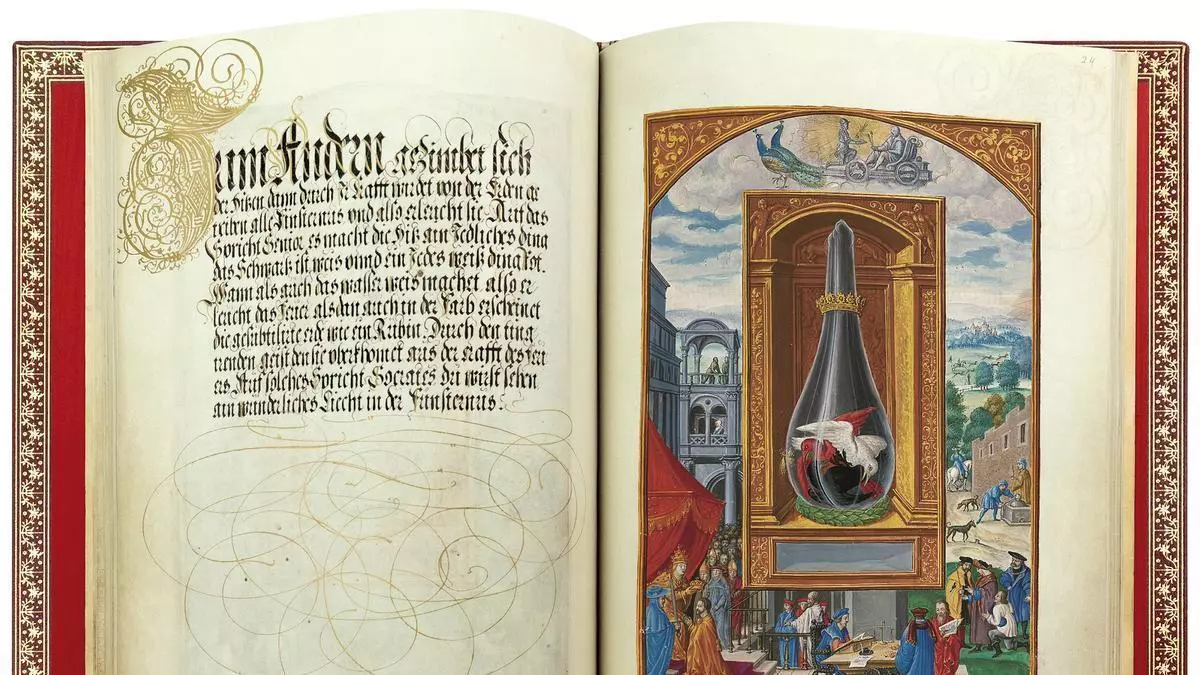 Zum Andern gezimbet sich
der hitzen dann durch ir Krafft wurdet von der Erden ge
triben alle Finsternus vnd also erleucht sie Auf das
Spricht Senior es macht die hitz ain Jedliches ding
das Schwartz ist weis vnnd ein Jedes weiß ding Rot.
Wann als auch das wasser weis machet also er
leucht das feuer alsdan auch in der Farb erscheinet
die gesubtilirte erd wie ein Rubin Durch den ting
irenden geist den sie vberkhomet aus der crafft des feu
ers Auf solches Spricht Socrates du wirst sehen
ain wunderliches Liecht in der Finsternus.
24